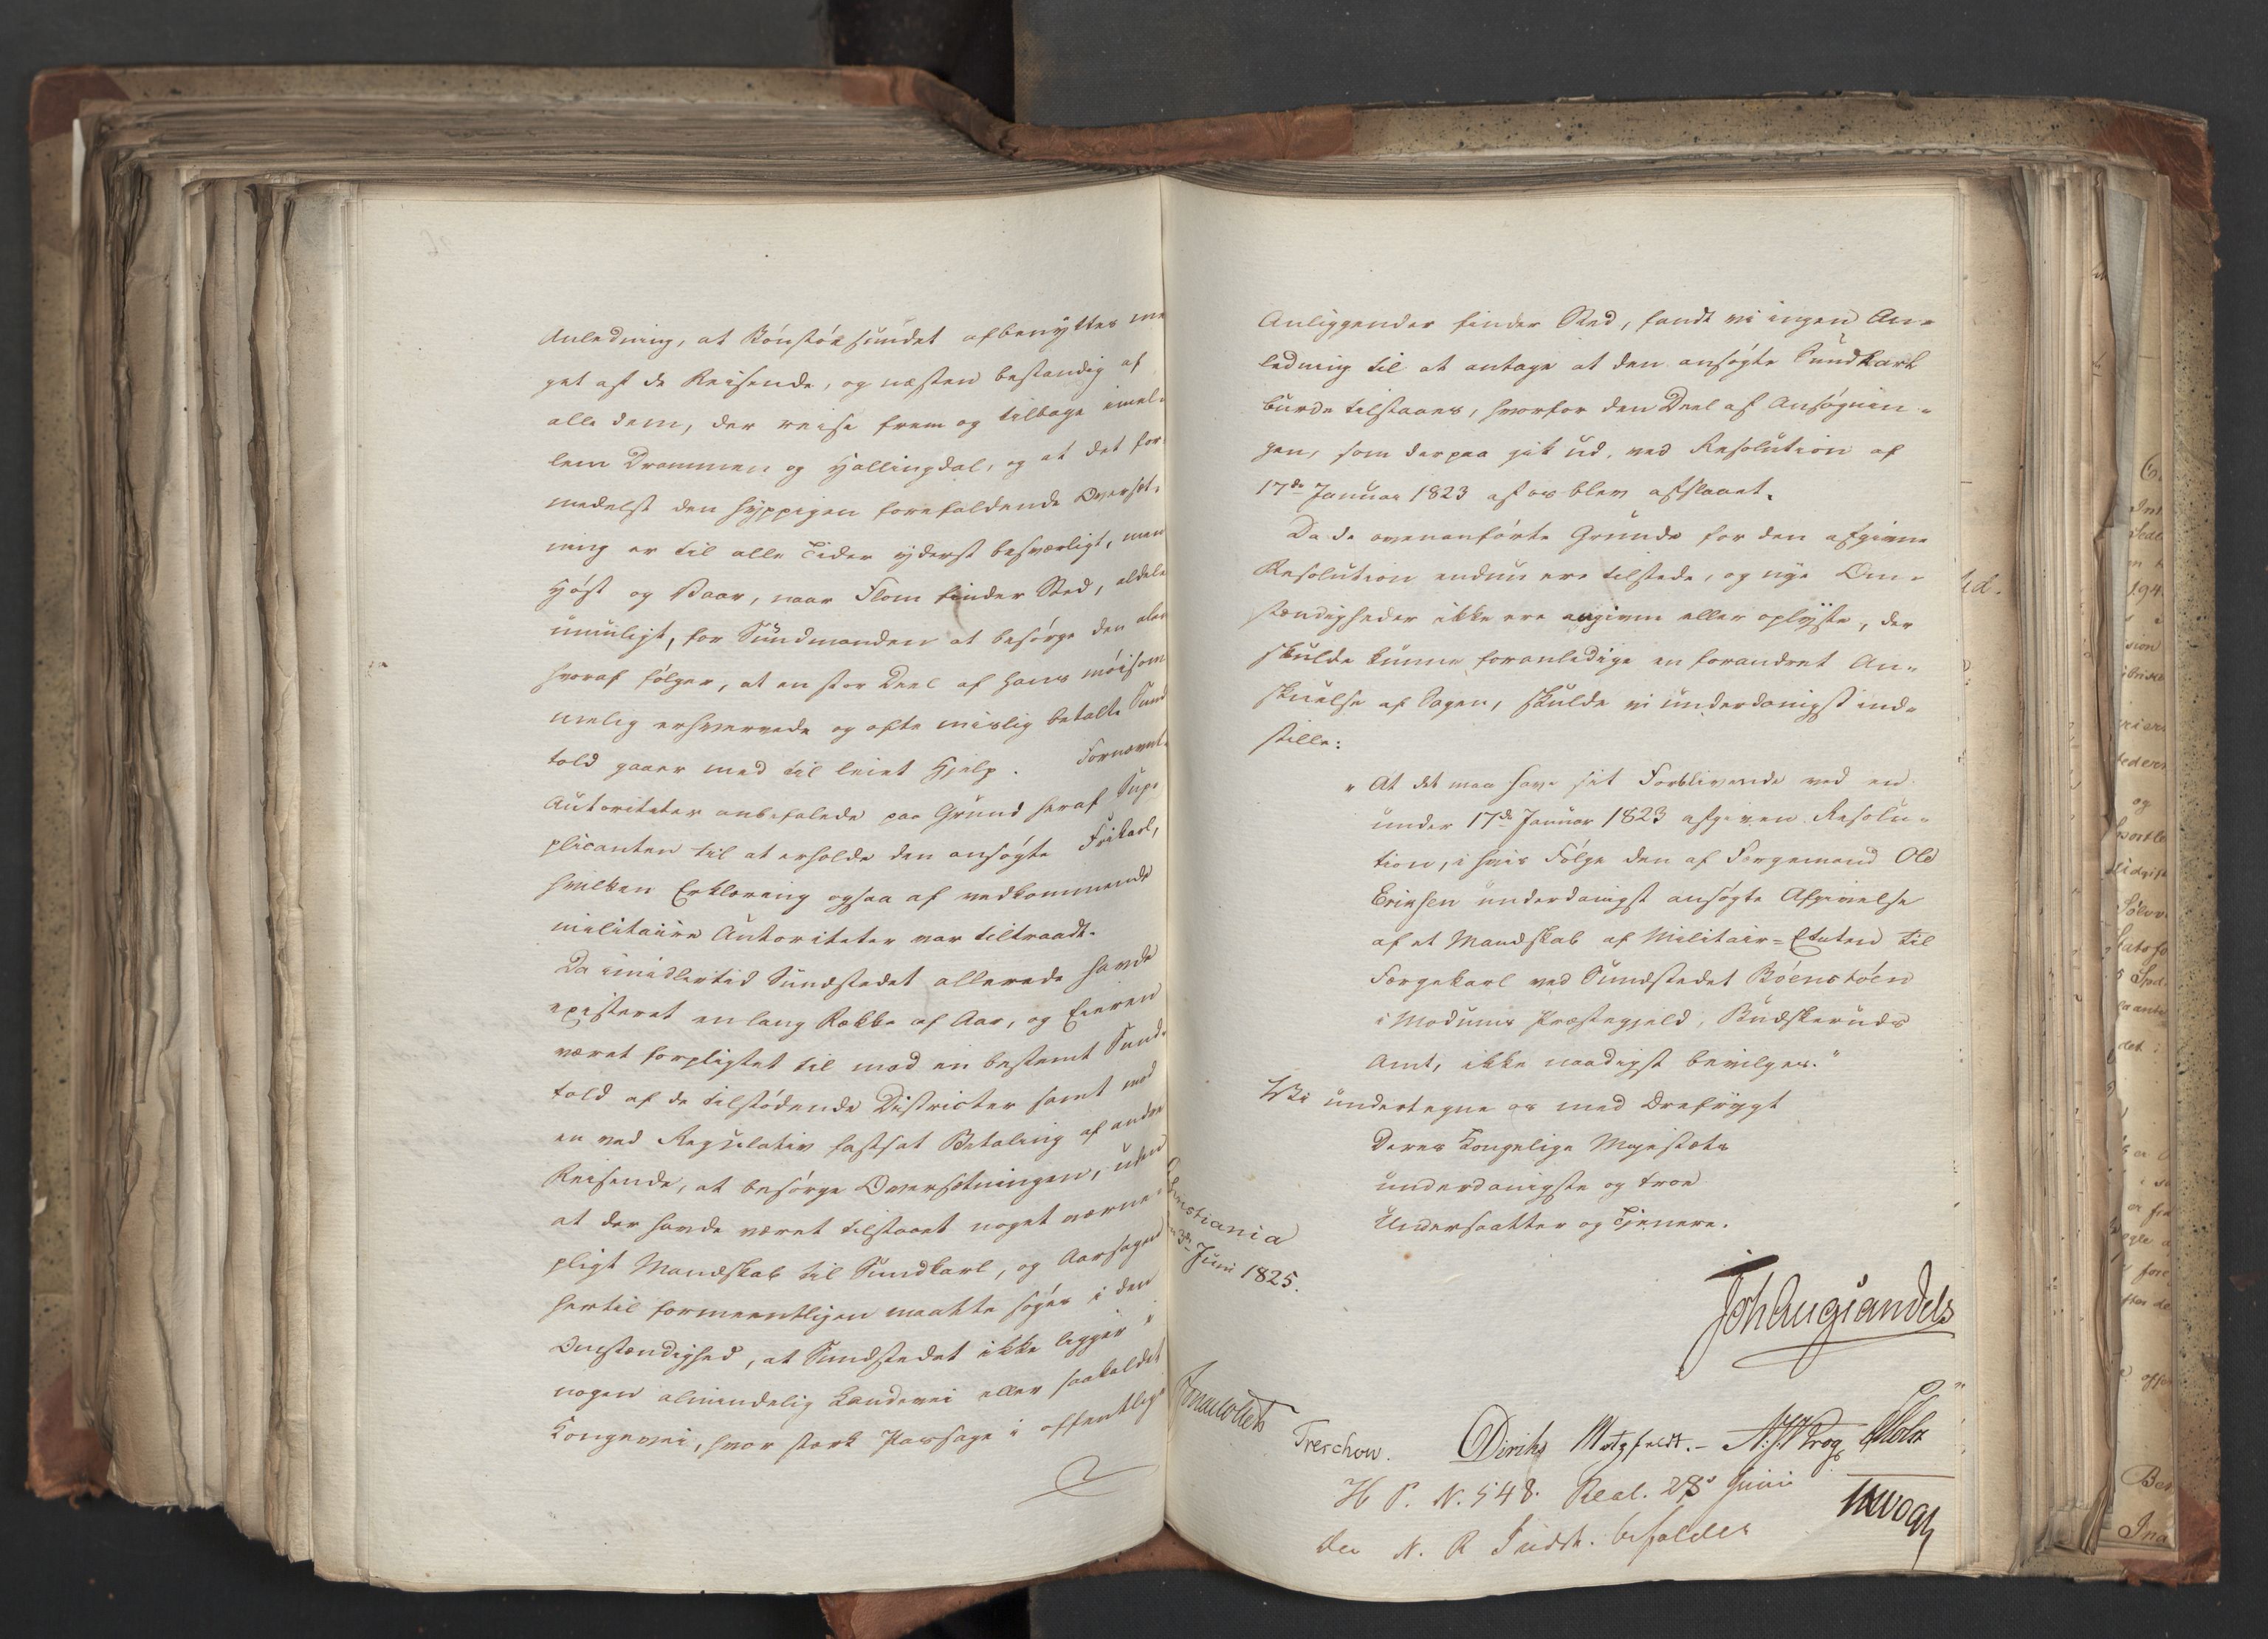 Anledning, at Bönstöesundet afbenyttes me
get af de Reisende, og næsten bestandig af
alle dem, der reise frem og tilbage imel-
lem Drammen og Hallingdal, og at det for
medelst den hyppigen forefaldende Oversæt-
ning er til alle Tider yderst besværligt, men
Høst og Vaar, naar Flom finder Sted, aldele
umuligt, for Sundmanden at besørge den alen
hvoraf følger, at en stor Deel af hans møisom
melig erhvervede og ofte mislig betalte Sund
told gaaer med til leiet Hjelp. Fornævnt-
Autoriteter anbefalede paa Grund heraf Sup-
plicanten til at erholde den ansøgte Frikarl,
hvilken Erklæring ogsaa af vedkommende
militaire Autoriteter var tiltraadt.
Da imidlertid Sundstedet allerede havde
existeret en lang Række af Aar, og Eieren
været forpligtet til mod en bestemt Sund-
told af de tilstødende Districter samt mod
en ved Regulativ fastsat Betaling af andre
Reisende, at besørge Oversætningen, uden
at der havde været tilstaaet noget værne-
pligt Mandskab til Sundkarl, og Aarsagen
hertil formeentligen maatte søges i den
Omstændighed, at Sundstedet ikke ligger i
nogen almindelig Landevei eller saakaldet
Kongevei, hvor stærk Passage i offentlige
Anliggender finder Sted, fandt vi ingen An-
ledning til at antage at den ansøgte Sundkarl
burde tilstaaes, hvorfor den Deel af Ansøgnin-
gen, som derpaa gik ud, ved Resolution af
17de Januar 1823 af os blev afslaaet.
Da de ovenanførte Grunde for den afgivne
Resolution endnu ere tilstede, og nye Om-
stændigheder ikke ere angivne eller oplyste, der
skulde kunne foranledige en forandret An-
skuelse af Sagen, skulde vi underdanigst ind-
stille:
"At det maa have sit Forblivende ved en
under 17de Januar 1823 afgiven Resolu-
tion, i hvis Følge den af Færgemand Ole
Eriksen underdanigst ansøgte Afgivelse
af et Mandskab af Militair-Etaten til
Færgekarl ved Sundstedet Böenstöen
i Modums Præstegjeld, Budskeruds
Amt, ikke naadigst bevilges."
Vi undertegne os med Drefrygt
Deres Kongelige Majestæts
underdanigste og troe
Undersaatter og Tjenere.
Christiania
3die Juni 1825.
Joh Aug Sandels
Jonas Collett
Treschow. Diriks Motzfeldt. N.J. Krog Holst
H P. N. 548. Real. 28d Juni
den N. R Indst. bifaldes
JHVogt